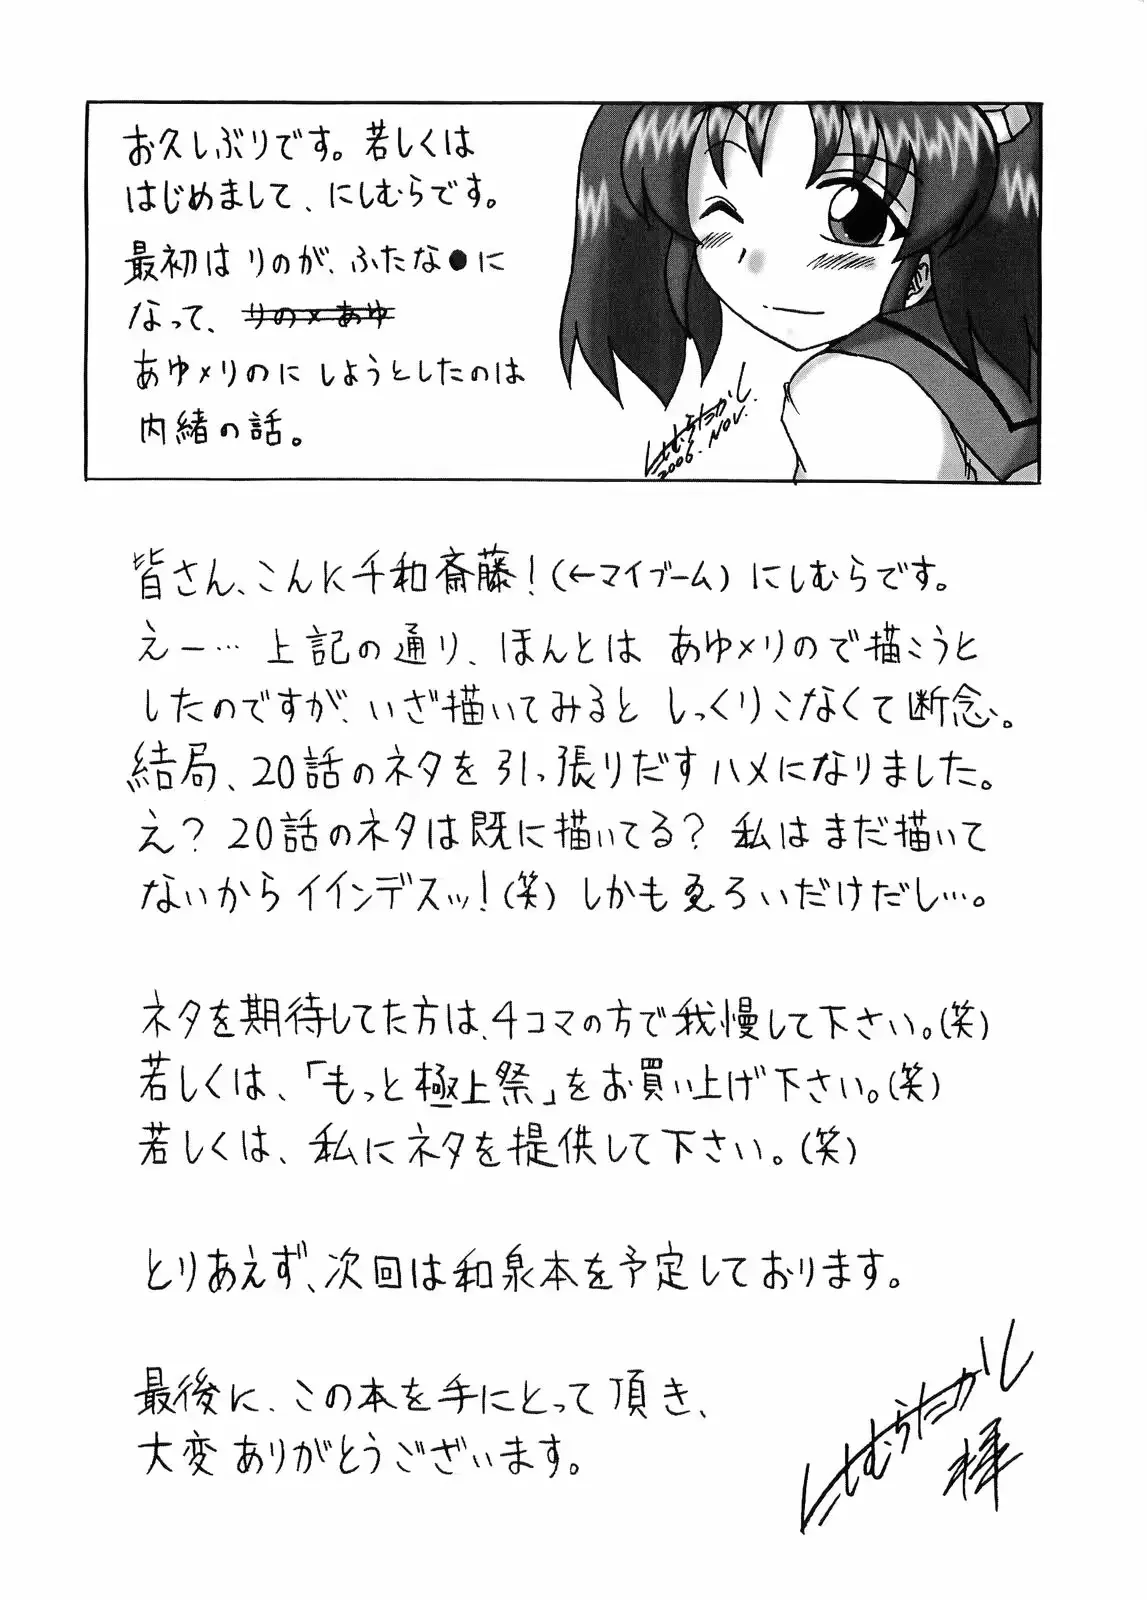 お久しぶりです。若しくは
はじめまして、にしむらです。
最初はりのが、ふたな●に
なって、りの×あゆ
あゆ×りのにしようとしたのは
内緒の話。
にしむらたかし
2006. NOV.
皆さん、こんに千和斎藤!(←マイブーム)にしむらです。
えー…上記の通り、ほんとはあゆ×りので描こうと
したのですが、いざ描いてみるとしっくりこなくて断念。
結局、20話のネタを引っ張りだすハメになりました。
え?20話のネタは既に描いてる?私はまだ描いて
ないからイインデスッ!(笑)しかもゑろいだけだし…。
ネタを期待してた方は、4コマの方で我慢して下さい。(笑)
若しくは、「もっと極上祭」をお買い上げ下さい。(笑)
若しくは、私にネタを提供して下さい。(笑)
とりあえず、次回は和泉本を予定しております。
最後に、この本を手にとって頂き、
大変ありがとうございます。
にしむらたかし
拝